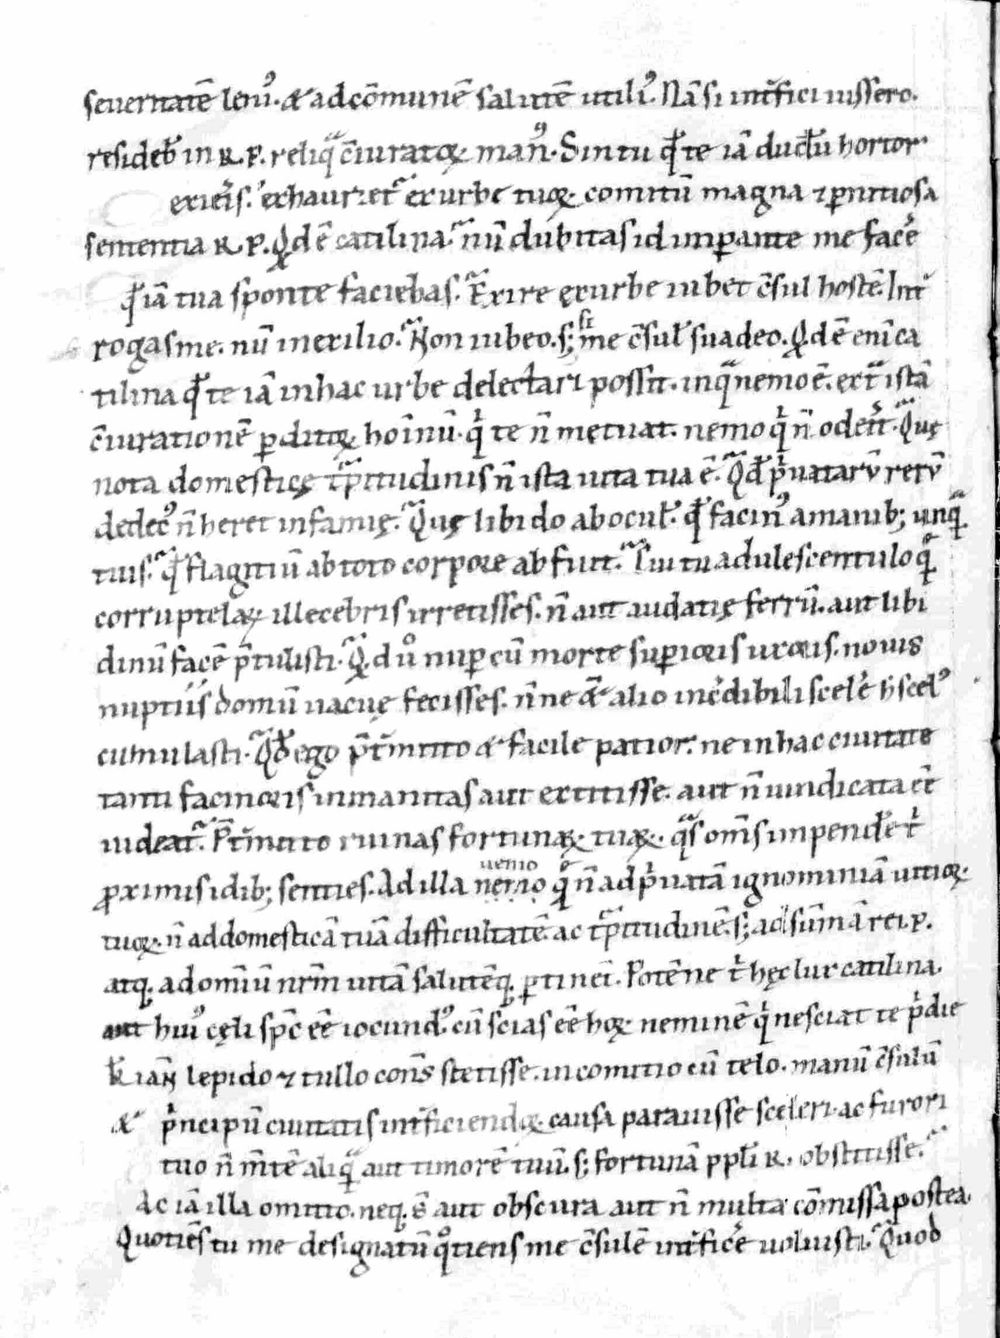 seueritatē leni᷒. & ad cōmunē salutē utili᷒. Nā si int̄fici iussero.
resideb̄ in R. P. reliq̄ c̄iuratoꝝ man᷒. Sin tu qd̄ te iā dudū hortor
exier̄s. exhauriet᷒ ex urbe tuoꝝ comitū magna ⁊ ꝑnitiosa
sententia R. P. Qd̄ ē catilina. nū dubitas id imꝑante me facē
qd̄ iā tua sponte faciebas. Exire ex urbe iubet c̄sul hostē. Int̄
rogas me. nū in exilio. Non iubeo. sꝫ si me c̄sul̄ suadeo. Qd̄ ē enī ca
tilina qd̄ te iā in hac urbe delectari possit. in qͣ nemo ē. ext̄ istā
c̄iurationē ꝑditoꝝ hoīnū. qͥ te n̄ metuat. nemo qͥ n̄ oderit. Quę
nota domesticę turpitudinis n̄ ista uita tua ē. Qd̄ pͥuatarū rerū
dedec᷒ n̄ heret infamię. Quę libido ab ocul̄. qd̄ facin᷒ a manibꝫ unqͣ
tuis. qd̄ flagitiū ab toto corpore abfuit. Cui tu adulescentulo quē
corruptelaꝝ illecebris irretisses. n̄ aut audatię ferrū. aut libi
dinū facē p̄tulisti. Qd̄ uͦ nuꝑ cū morte suꝑioris uxoris. nouis
nuptiis domū uacuę fecisses. n̄ne & alio incͤdibili scelē h̄ scel᷒
cumulasti. Qd̄ ego p̄t̄mitto & facile patior. ne in hac ciuitate
tanti facinoris inmanitas aut extitisse. aut n̄ uindicata eē
uideat᷒. P̄t̄mitto ruinas fortunaꝝ tuaꝝ. qͣs om̄s impendē tͥ
ꝓximis idibꝫ senties. Ad illa nemo uenio q̄ n̄ ad pͥuatā ignominiā uitioꝝ
tuoꝝ. n̄ ad domesticā tuā difficultatē. ac turpitudinē. sꝫ ad sūmā rei. P.
atq. ad omīū nr̄m uitā salutēq. ꝑtinet. Potē ne tͥ hęc lux catilina.
aut hui᷒ cęli spc̄ eē iocund᷒. cū scias eē hoꝝ neminē qͥ nesciat te pͥdie
kl̄ ian̄ lepido ⁊ tullo cons̄ stetisse. in comitio cū telo. manū c̄sulū
& pͥncipū ciuitatis int̄ficiendoꝝ causa parauisse sceleri. ac furori
tuo n̄ m̄tē aliquā aut timorē tuū. sꝫ fortunā ppl̄i R. obstitisse.
Ac iā illa omitto. neq. s̄ aut obscura aut n̄ multa cōmissa postea.
Quotiēs tu me designatū qͦtiens me c̄sulē int̄ficē uoluisti. Quod